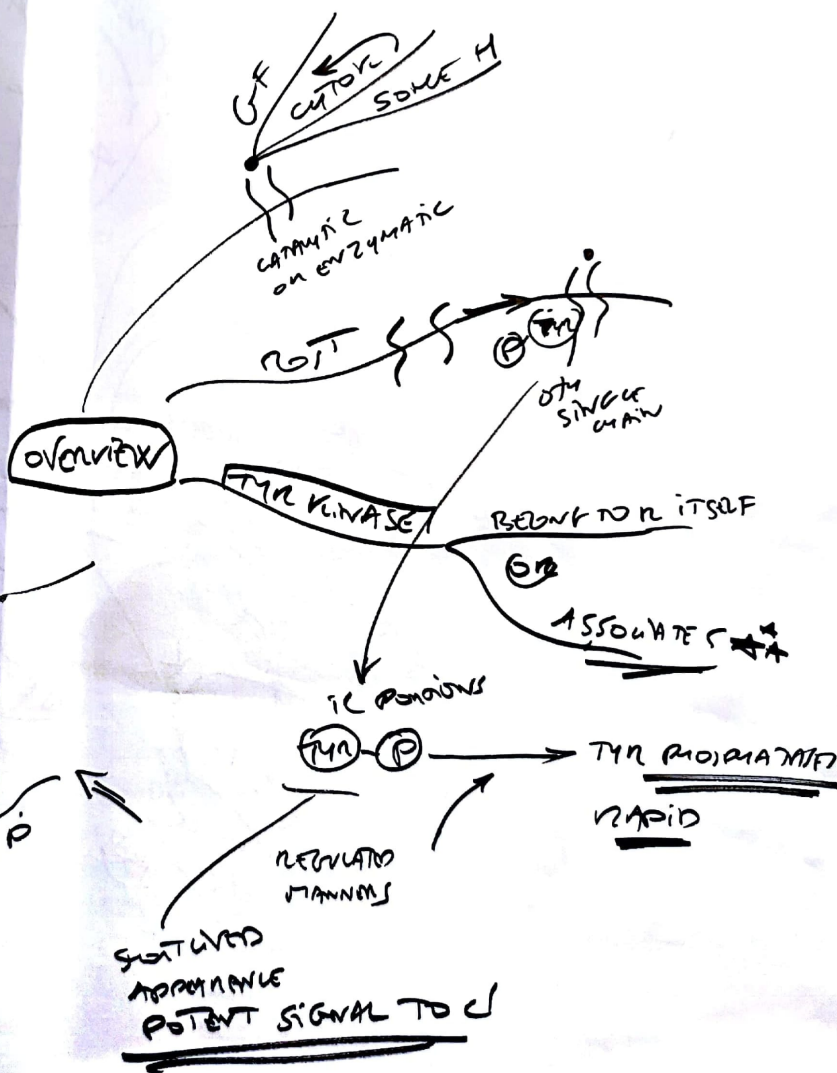 GF
SOME H
CATALYTIC
OR ENZYMATIC
TYR
P
OTH
SINGLE
CHAIN
OVERVIEW
TYR KINASE
BELONG TO R ITSELF
OR
ASSOCIATES
IC PORTIONS
TYR P
TYR PHOSPHATASES
RAPID
REGULATED
MANNERS
P
APPEARANCE
POTENT SIGNAL TO